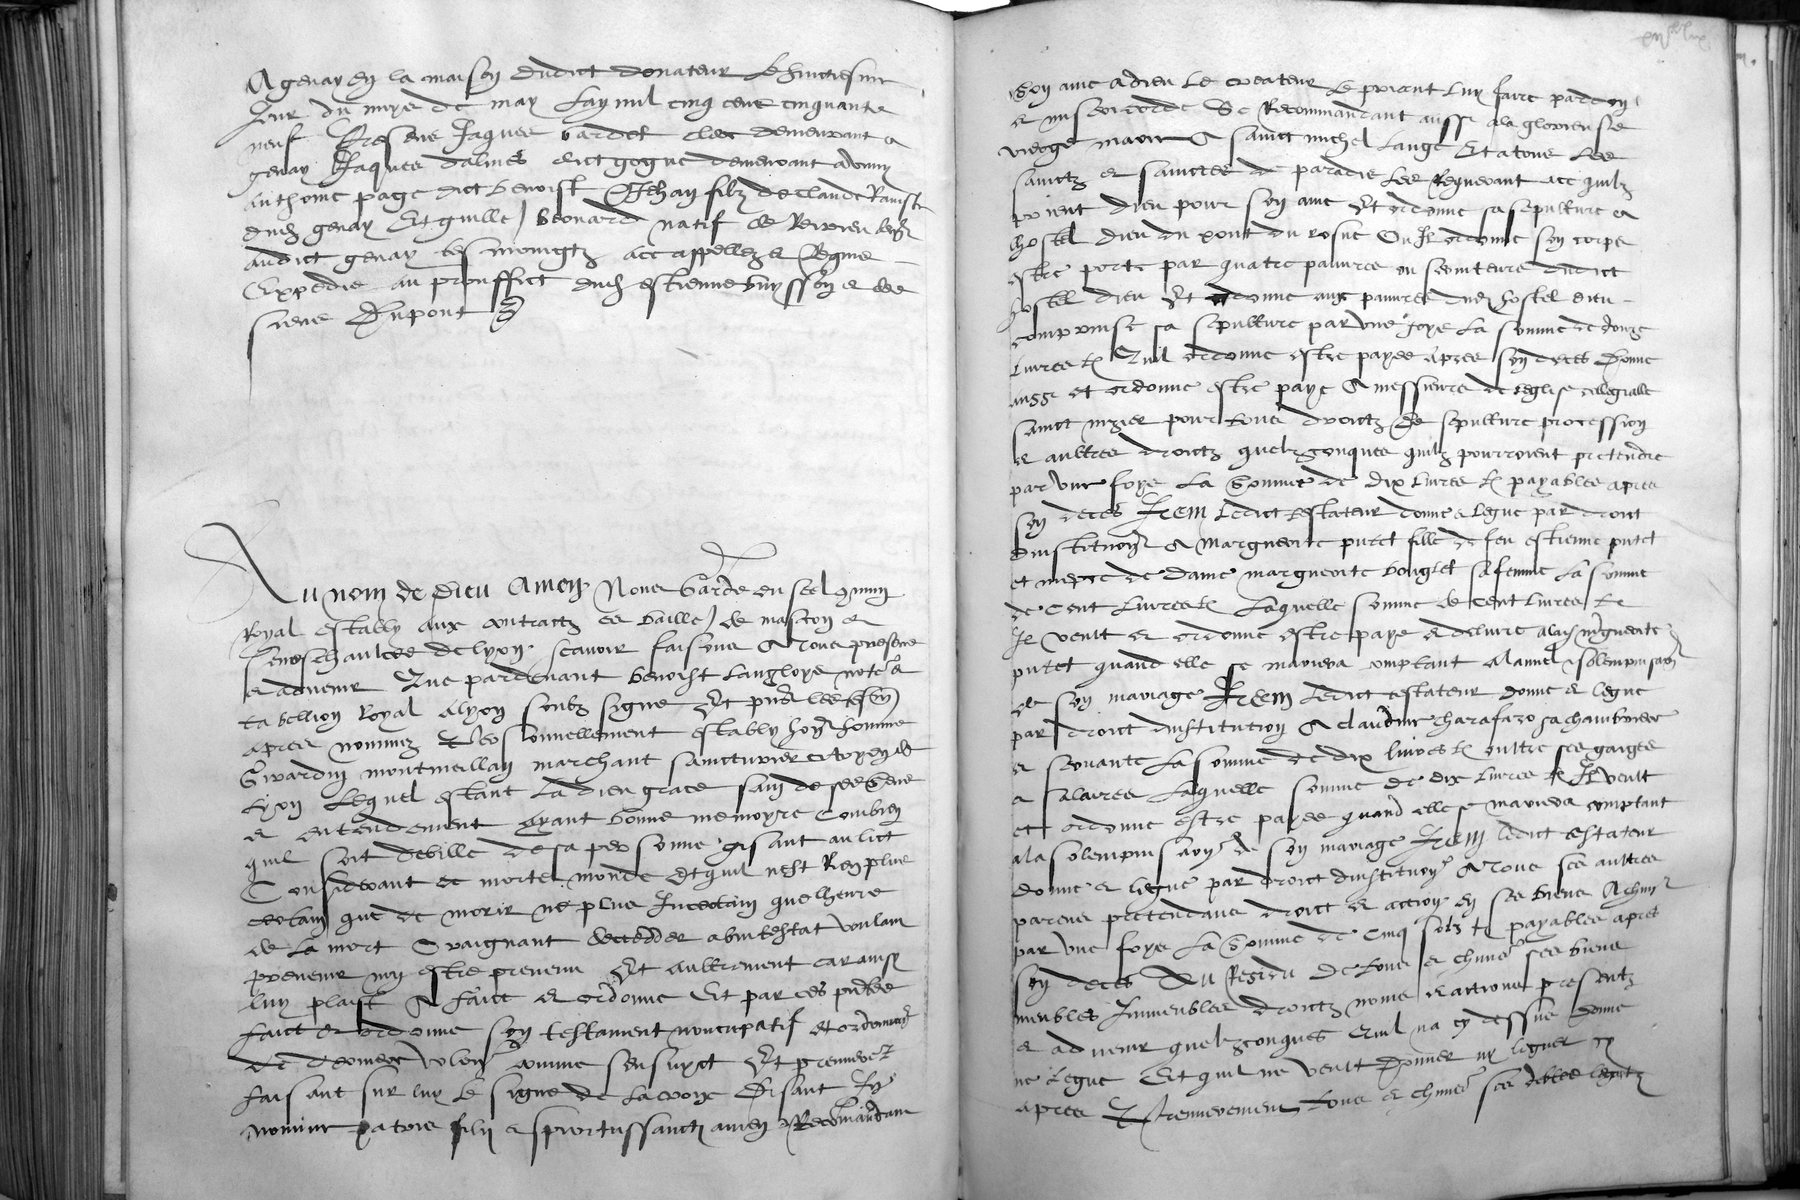 A genay en la maison dudict donateur le huictiesme
Jour du moys de may l'an mil cinq cens cinquante
neuf Presens Jaques bardet clerc demeurant a
genay Jaques dalines dict gogue demeurant a
anthoine page dict benoist Jehan filz de claude
dudict genay Et guille leonard natif de
audict genay tesmoingtz ace appellez et Requis
Expedie au prouffict dudict estienne buysson et des
siens Dupont
Au nom de Dieu Amen Nous Garde du seel commun
Royal estably aux contractz es bailliage de mascon et
seneschaulcee de lyon scavoir faisons A tous presens
et advenir Que pardevant benoist langloys notere
tabellion Royal a lyon soubz signe Et presens les tesmoings
apres nommez personnellement estably honneste homme
Girardin montmeillan marchant citoyen de
lyon Lequel estant la dieu grace sain de ses sens
et entendement Ayant bonne memoyre Combien
quil soit debille de sa personne gisant au lict
Considerant ce mortel monde Et quil nest Rien plus
certain que de morir ne plus Incertain que lheure
de la mort Craignant decedder abintestat voulant
prevenir non estre prevenu Et aultrement car ainsi
luy plaist A faict et ordonne Et par ces presentes
faict et ordonne son testament noncupatif et ordonnance
de derniere volente comme sensuyt Et premierement
faisant sur luy le signe de la croix Disant In
nomine patris filii et spiritussancti amen Recommandant
son ame a dieu le createur le priant luy faire pardon
et misericorde Se Recommandant aussi a la glorieuse
vierge marie A sainct michel lange Et a tous les
sainctz et sainctes de paradis les Requerant ace quilz
prient dieu pour son ame Et ordonne sa sepulture a
lhostel dieu du pont du rosne Ou Il ordonne son corps
estre porte par quatre pauvres ou serviteurs dudict
hostel dieu Et donne aux pauvres dudict hostel dieu
comprinse sa sepulture par une foys la somme de douze
livres tz Quil ordonne estre payee apres son deces Donne
aussi et ordonne estre paye A messieurs de leglise collegialle
sainct nizier pour tous droictz de sepulture procession
et aultres droictz quelzconques quilz pourroient pretendre
par une foys la somme de dix livres tz payables apres
son deces Item ledict testateur donne et legue par droict
dinstitution A marguerite putet fille de feu estienne putet
et niepce de dame marguerite bouglet sa femme la somme
de Cent livres tz laquelle somme de cent livres tz
Il veult et ordonne estre paye et delivre a ladicte marguerite
putet quand elle se mariera comptant a lannee solempnisation
de son mariage Item ledict testateur donne et legue
par droict dinstitution A claudine charafazo sa chambriere
et servante la somme de dix livres tz oultre ses gaiges
et salaires laquelle somme de dix livres tz Il veult
et ordonne estre payee quand elle se mariera comptant
a la solempnisation de son mariage Item ledict testateur
donne et legue par droict dinstitution A tous ses aultres
parens pretendans droict et action en ses biens A chascun
par une foys la somme de Cinq solz tz payables apres
son deces Au Residu de tous et chascuns ses biens
meubles Immeubles droictz noms et actions presentz
et advenir quelzconques Quil na cy dessus donne
ne legue Et quil ne veult Donner ny leguer cy
apres Et premierement tous et chascuns ses debtes legatz